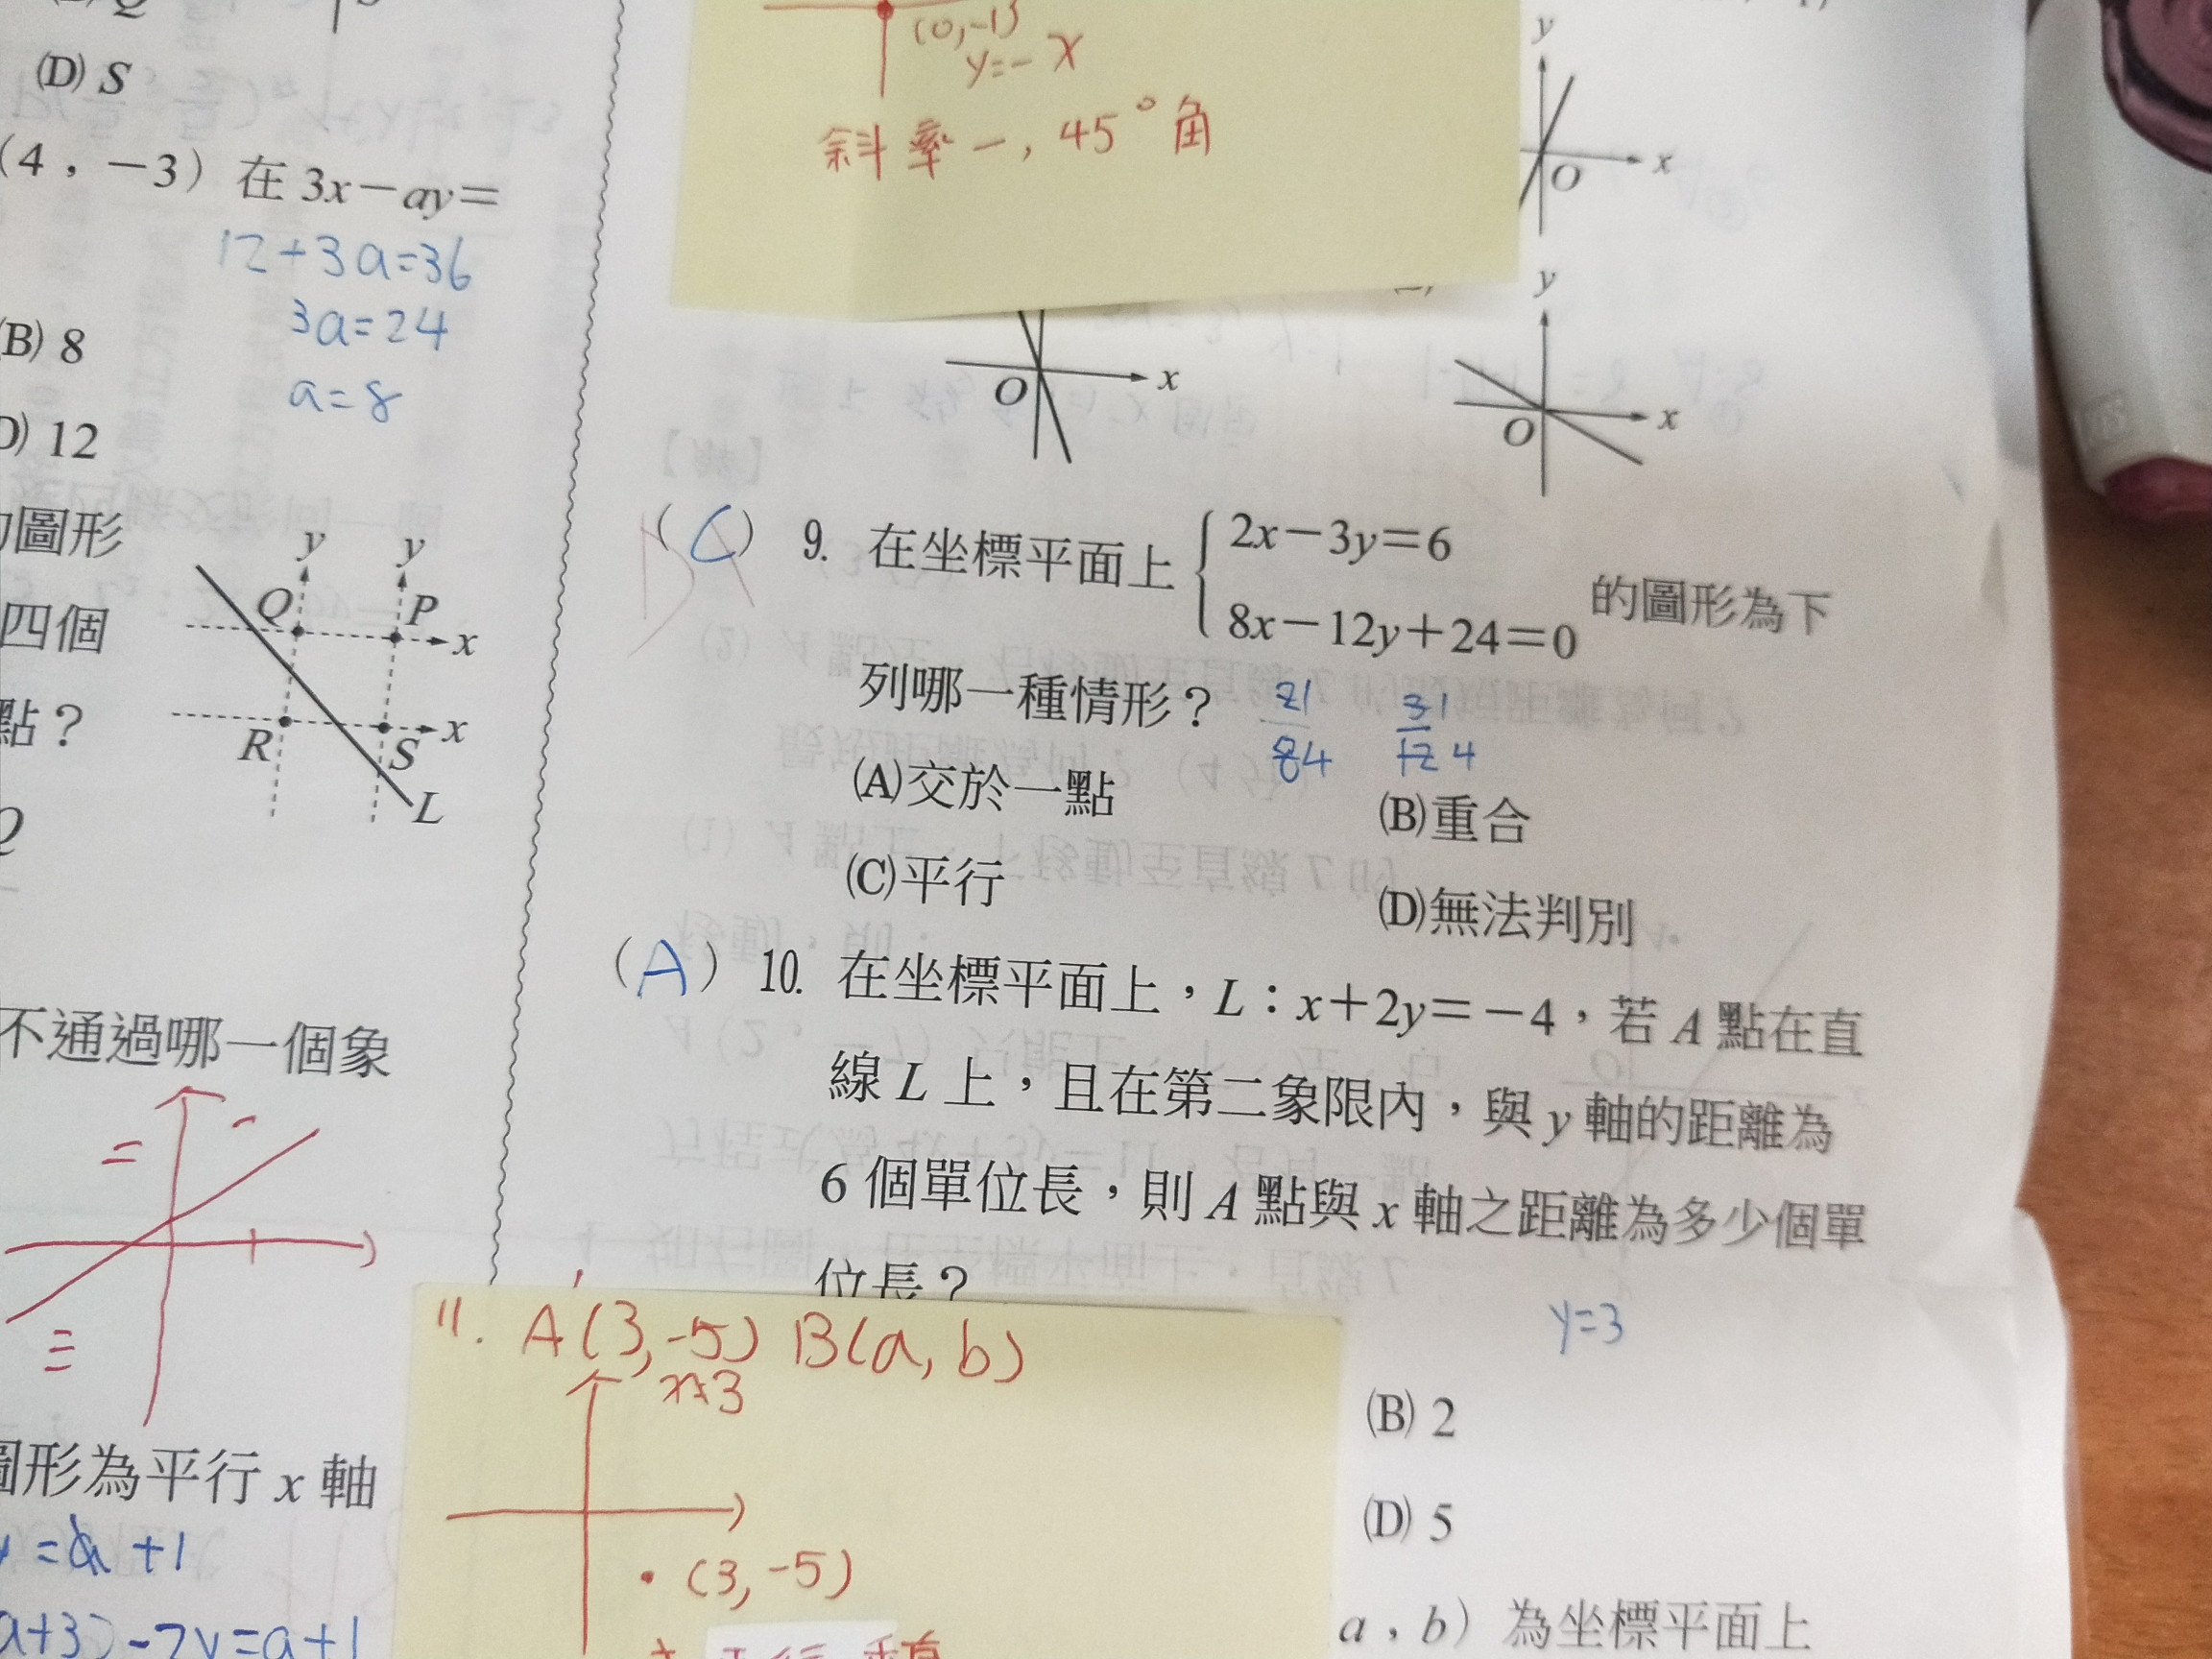 (D) S
(4，-3) 在 3x-ay=
12+3a=36
3a=24
(B) 8
a=8
D) 12
圖形
四個
點？
y
y
Q
P
x
R
S
x
L
不通過哪一個象
二
一
三
圖形為平行 x 軸
+1
-2y=a+1
(0,-1)
y=-x
斜率一, 45°角
y
O
x
y
O
x
O
x
(C) 9. 在坐標平面上 { 2x-3y=6
8x-12y+24=0 的圖形為下
列哪一種情形？
21
84
31
12 4
(A)交於一點
(B)重合
(C)平行
(D)無法判別
(A) 10. 在坐標平面上，L：x+2y=-4，若 A 點在直
線 L 上，且在第二象限內，與 y 軸的距離為
6 個單位長，則 A 點與 x 軸之距離為多少個單
位長？
y=3
(B) 2
(D) 5
11. A(3,-5) B(a,b)
(3,-5)
a，b) 為坐標平面上